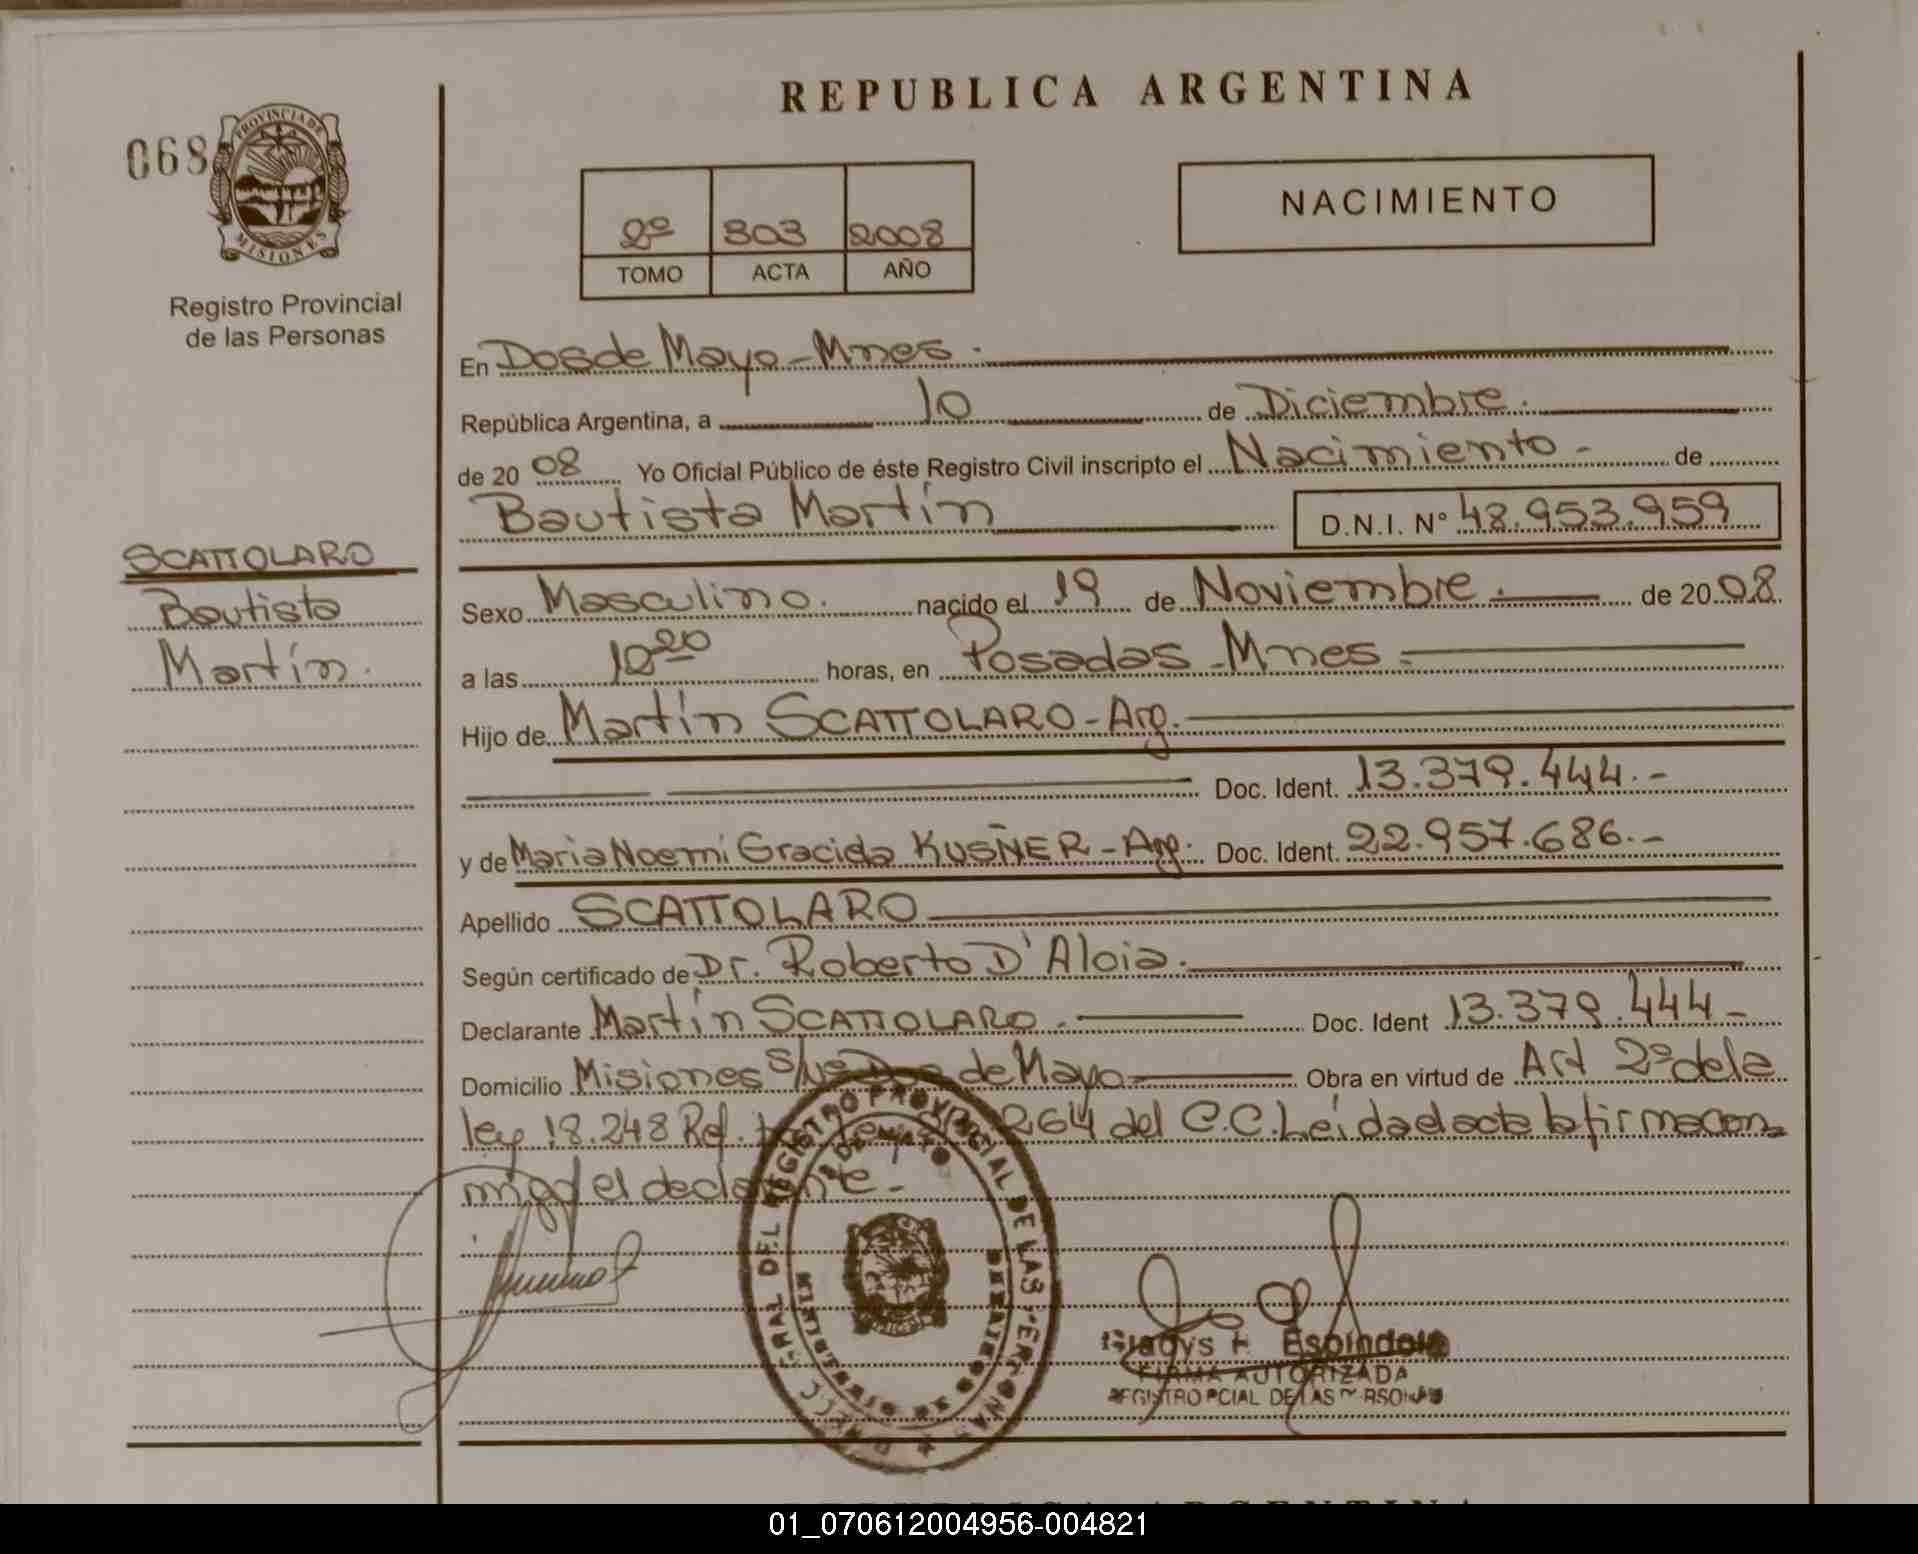 REPUBLICA ARGENTINA
068
PROVINCIA DE
MISIONES
NACIMIENTO
2º 303 2008
TOMO ACTA AÑO
Registro Provincial
de las Personas
En Dos de Mayo - Mnes.
República Argentina, a 10 de Diciembre.
de 2008 Yo Oficial Público de éste Registro Civil inscripto el Nacimiento - de
Bautista Martín D.N.I. Nº 48.953.959
SCATTOLARO
Bautista
Martín.
Sexo Masculino. nacido el 19 de Noviembre. de 2008
a las 10 20 horas, en Posadas - Mnes
Hijo de Martín SCATTOLARO - Arg.
Doc. Ident. 13.379.444.-
y de Maria Noemi Gracida KUSÑER - Arg. Doc. Ident. 22.957.686.-
Apellido SCATTOLARO
Según certificado de Dr. Roberto D'Aloia.
Declarante Martín SCATTOLARO. Doc. Ident 13.379.444-
Domicilio Misiones S/Nº Dos de Mayo Obra en virtud de Art 2º de la
ley 18.248 Ref. 264 del C.C. Leída el acta la firma con
migo el declarante.-
Gladys Espindola
FIRMA AUTORIZADA
REGISTRO PCIAL DE LAS PERSONAS
REPUBLICA ARGENTINA
01_070612004956-004821